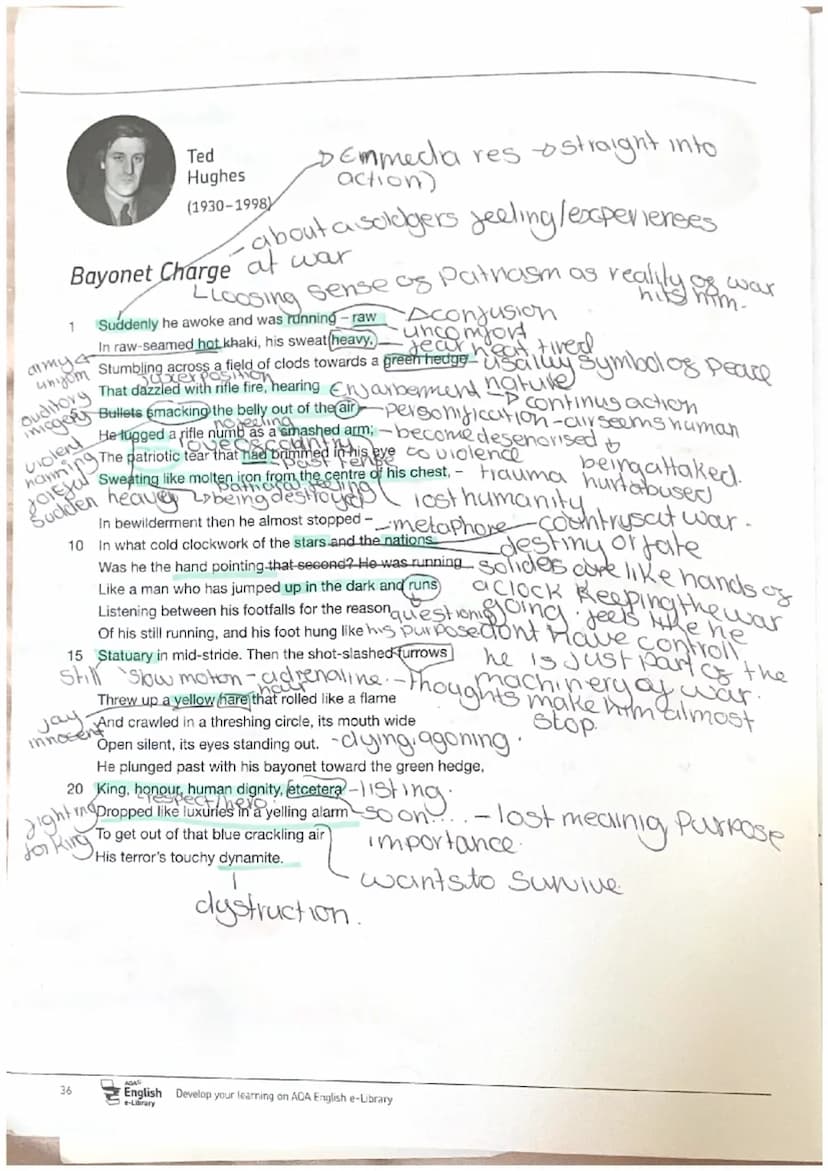 Ted
Hughes
(1930–1998)
Emmedia res → straight into
action)
- about a soldgers feeling/experienses
at war
Bayonet Charge
Loosing sense of patriasm as reality of war
hits him.
1 Suddenly he awoke and was running – raw
confusion
uncomfort
In raw-seamed hot khaki, his sweat heavy,
fear heat tired
army
uniform
Stumbling across a field of clods towards a green hedge
usually symbol of peace
nature
juxterposition
That dazzled with rifle fire, hearing
Enjarberment → continus action
auditory
imagery
Bullets smacking the belly out of the air –
personification - air seems human
no feeling
He lugged a rifle numb as a smashed arm;
- become desenorised
to violence
being attaked.
hurt abused
violent
love of country
The patriotic tear that had brimmed in his eye
past tense
Sweating like molten iron from the centre of his chest, –
trauma
lost humanity
sudden heavey
being destroyed
In bewilderment then he almost stopped –
metaphore
countrys at war.
10 In what cold clockwork of the stars and the nations
destiny or fate
Was he the hand pointing that second? He was running
solides are like hands of
a clock keeping the war
going. feels like he
dont have controll
he is just part of the
machinery of war.
Like a man who has jumped up in the dark and runs
Listening between his footfalls for the reason
questioning
his purpose
Of his still running, and his foot hung like
15 Statuary in mid-stride. Then the shot-slashed furrows
still
slow motion - adrenaline. - thoughts make him almost
stop.
hair
Threw up a yellow hare that rolled like a flame
innocent
And crawled in a threshing circle, its mouth wide
Open silent, its eyes standing out.
- dying, agoning.
He plunged past with his bayonet toward the green hedge,
20 King, honour, human dignity, etcetera
- listing.
respect/hero
fighting
for king
Dropped like luxuries in a yelling alarm
so on.... - lost meaning purpose
importance.
To get out of that blue crackling air
His terror's touchy dynamite.
wants to survive.
dystruction.
36
AQA
English
e-Library
Develop your learning on AQA English e-Library